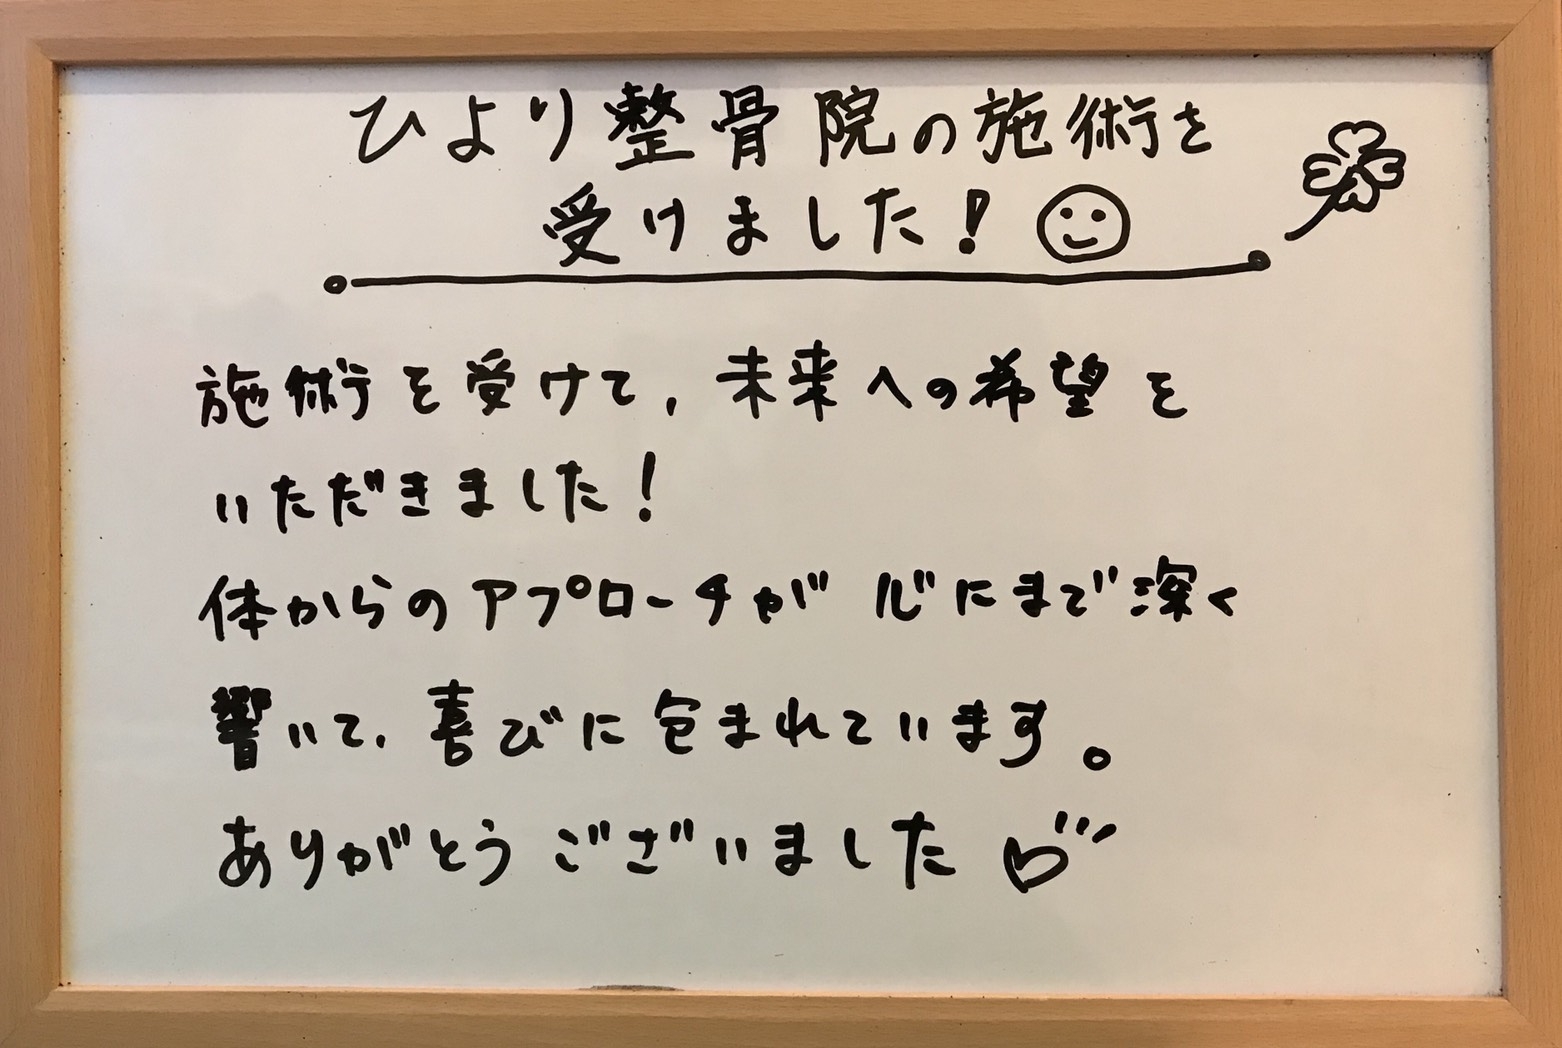 ひより整骨院の施術を
受けました!
施術を受けて、未来への希望を
いただきました!
体からのアプローチが心にまで深く
響いて、喜びに包まれています。
ありがとうございました